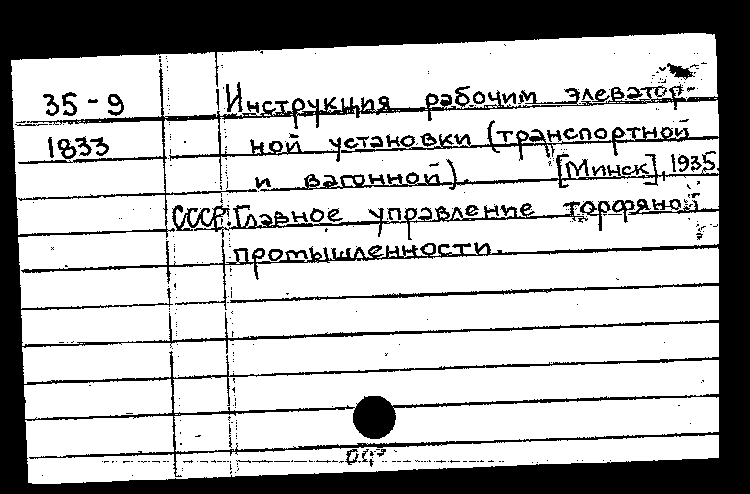 35-9 Инструкция рабочим элеватор-
1833 ной установки (транспортной
и вагонной). [Минск], 1935.
СССР. Главное управление торфяной
промышленности.